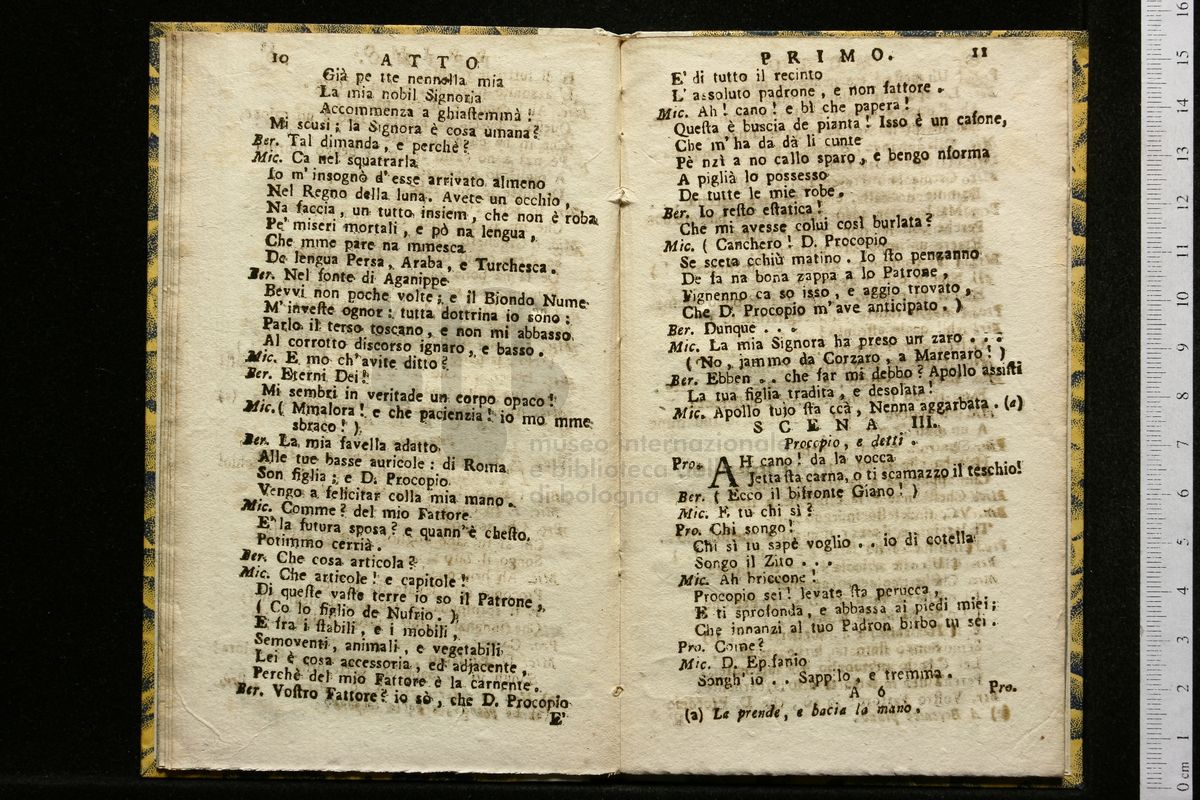 10 ATTO
Già pe tte nennolla mia
La mia nobil Signoria
Accommenza a ghiaſtemmà!
Mi scusi; la Signora è cosa umana?
Ber. Tal dimanda, e perchè?
Mic. Ca nel squatrarla
Io m' insognò d' esse arrivato almeno
Nel Regno della luna. Avete un occhio,
Na faccia, un tutto insiem, che non è roba
Pe' miseri mortali, e pò na lengua,
Che mme pare na mmesca
De lengua Persa, Araba, e Turchesca.
Ber. Nel fonte di Aganippe
Bevvi non poche volte; e il Biondo Nume
M' inveſte ognor: tutta dottrina io sono:
Parlo il terso toscano, e non mi abbasso
Al corrotto discorso ignaro, e basso.
Mic. E mo ch' avite ditto?
Ber. Eterni Dei!
Mi sembri in veritade un corpo opaco!
Mic. ( Mmalora! e che pacienzia! io mo mme
sbraco! )
Ber. La mia favella adatto
Alle tue basse auricole: di Roma
Son figlia; e D. Procopio
Vengo a felicitar colla mia mano.
Mic. Comme? del mio Fattore
E' la futura sposa? e quann' è cheſto,
Potimmo cerrià.
Ber. Che cosa articola?
Mic. Che articole! e capitole!
Di queſte vaſte terre io so il Patrone,
( Co lo figlio de Nufrio. )
E fra i ſtabili, e i mobili,
Semoventi, animali, e vegetabili
Lei è cosa accessoria, ed adjacente,
Perchè del mio Fattore è la carnente.
Ber. Voſtro Fattore? io sò, che D. Procopio
E'
PRIMO. 11
E' di tutto il recinto
L' assoluto padrone, e non fattore.
Mic. Ah! cano! e bì che papera!
Queſta è buscia de pianta! Isso è un cafone,
Che m' ha da dà li cunte
Pè nzì a no callo sparo, e bengo nforma
A piglià lo possesso
De tutte le mie robe.
Ber. Io reſto eſtatica!
Che mi avesse colui così burlata?
Mic. ( Canchero! D. Procopio
Se sceta cchiù matino. Io ſto penzanno
De fa na bona zappa a lo Patrone,
Fignenno ca so isso, e aggio trovato,
Che D. Procopio m'ave anticipato. )
Ber. Dunque . . .
Mic. La mia Signora ha preso un zaro . . .
( No, jammo da Corzaro, a Marenaro! )
Ber. Ebben . . che far mi debbo? Apollo assiſti
La tua figlia tradita, e desolata!
Mic. Apollo tujo ſta ccà, Nenna aggarbata. (a)
SCENA III.
Procopio, e detti.
Pro. AH cano! da la vocca
Jetta ſta carna, o ti scamazzo il teschio!
Ber. ( Ecco il bifronte Giano! )
Mic. E tu chi sì?
Pro. Chi songo!
Chi sì tu sapè voglio . . io di cotella
Songo il Zito . . .
Mic. Ah briccone!
Procopio sei! levate ſta perucca,
E ti sprofonda, e abbassa ai piedi miei;
Che innanzi al tuo Padron birbo tu sei.
Pro. Come?
Mic. D. Epifanio
Songh' io . . Sappilo, e tremma.
A 6 Pro.
(a) La prende, e bacia la mano.
museo internazionale
e biblioteca della
di bologna